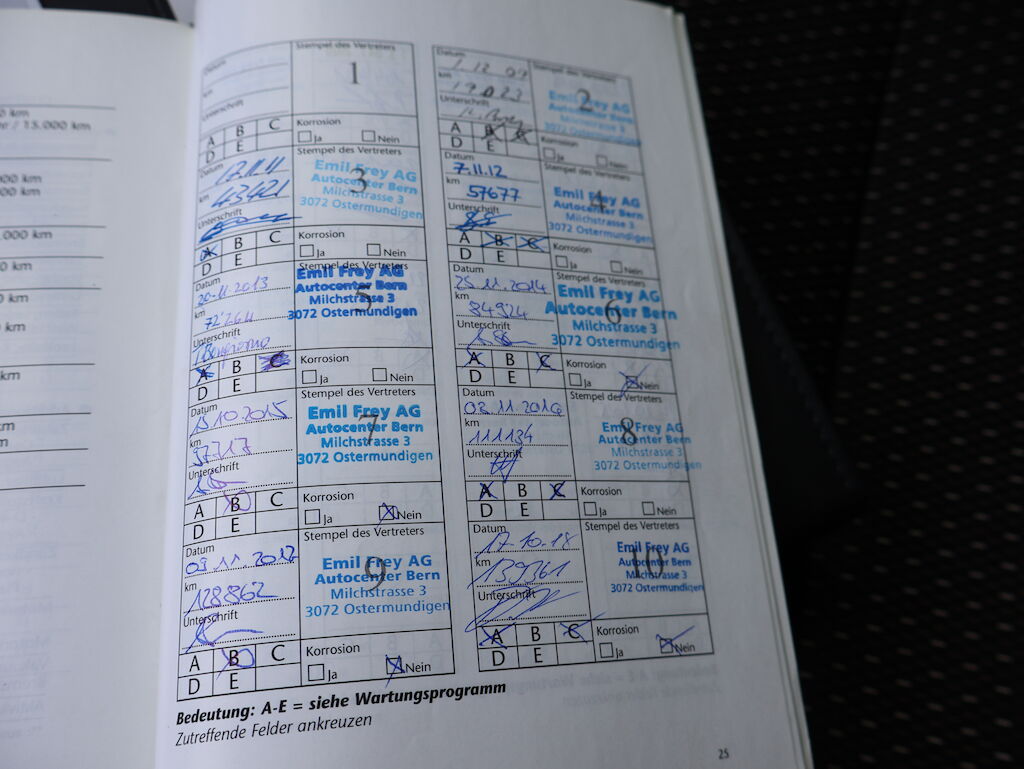 km
/ 15.000 km
000 km
000 km
.000 km
km
km
km
km
m
m
Datum
km
Unterschrift
Stempel des Vertreters
1
A B C
D E
Korrosion
Ja Nein
Datum
1.12.09
km
19023
Unterschrift
Stempel des Vertreters
2
Emil Frey AG
Autocenter Bern
Milchstrasse 3
3072 Ostermundigen
A B C
D E
Korrosion
Ja Nein
Datum
km
43421
Unterschrift
Stempel des Vertreters
3
Emil Frey AG
Autocenter Bern
Milchstrasse 3
3072 Ostermundigen
A B C
D E
Korrosion
Ja Nein
Datum
7.11.12
km
57677
Unterschrift
Stempel des Vertreters
4
Emil Frey AG
Autocenter Bern
Milchstrasse 3
3072 Ostermundigen
A B C
D E
Korrosion
Ja Nein
Datum
20.11.2013
km
72'264
Unterschrift
Stempel des Vertreters
5
Emil Frey AG
Autocenter Bern
Milchstrasse 3
3072 Ostermundigen
A B C
D E
Korrosion
Ja Nein
Datum
25.11.2014
km
84924
Unterschrift
Stempel des Vertreters
6
Emil Frey AG
Autocenter Bern
Milchstrasse 3
3072 Ostermundigen
A B C
D E
Korrosion
Ja Nein
Datum
15.10.2015
km
97717
Unterschrift
Stempel des Vertreters
7
Emil Frey AG
Autocenter Bern
Milchstrasse 3
3072 Ostermundigen
A B C
D E
Korrosion
Ja Nein
Datum
03.11.2016
km
111134
Unterschrift
Stempel des Vertreters
8
Emil Frey AG
Autocenter Bern
Milchstrasse 3
3072 Ostermundigen
A B C
D E
Korrosion
Ja Nein
Datum
03.11.2017
km
128862
Unterschrift
Stempel des Vertreters
9
Emil Frey AG
Autocenter Bern
Milchstrasse 3
3072 Ostermundigen
A B C
D E
Korrosion
Ja Nein
Datum
17-10-18
km
139361
Unterschrift
Stempel des Vertreters
10
Emil Frey AG
Autocenter Bern
Milchstrasse 3
3072 Ostermundigen
A B C
D E
Korrosion
Ja Nein
Bedeutung: A-E = siehe Wartungsprogramm
Zutreffende Felder ankreuzen
25